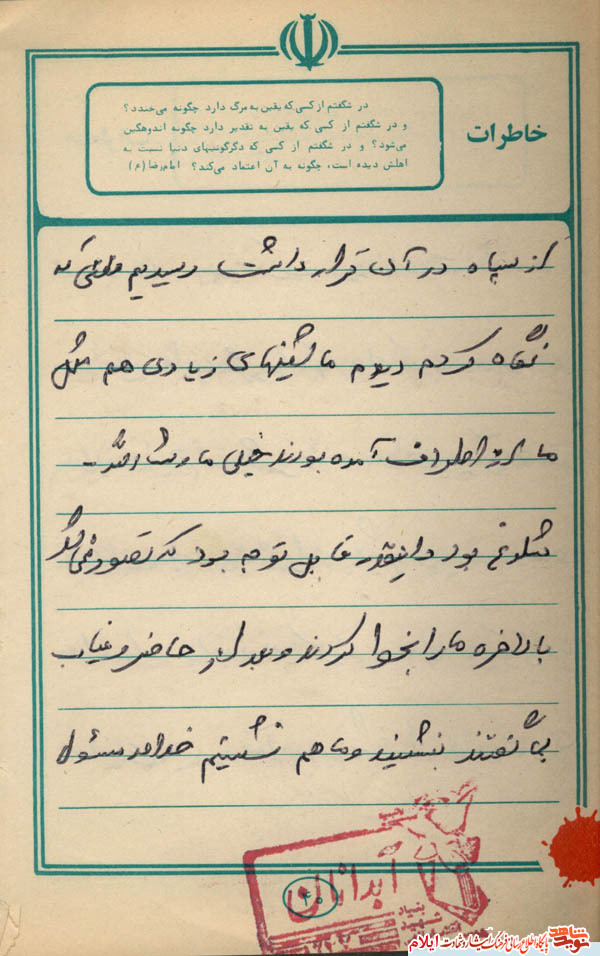 خاطرات
در شگفتم از کسی که یقین به مرگ دارد چگونه میخندد؟
و در شگفتم از کسی که یقین به تقدیر دارد چگونه اندوهگین
میشود؟ و در شگفتم از کسی که دگرگونیهای دنیا نسبت به
اهلش دیده است، چگونه به آن اعتماد میکند؟ امام رضا (ع)
از سپاه در آن قرار داشت رسیدیم وقتی که
نگاه کردم دیدم ماشینهای زیادی هم مثل
ما از اطراف آمده بودند خیلی ماشاءالله
شلوغ بود و اینقدر قابل توجه بود که تصور نمی‌شد
بالاخره ما را بخط کردند و بعد از حاضر و غیاب
گفتند بنشینید و ما هم نشستیم خدا مسئول
آبدانان
بنیاد شهید
۴۰
نوید شاهد
پایگاه اطلاع رسانی فرهنگ ایثار و شهادت ایلام